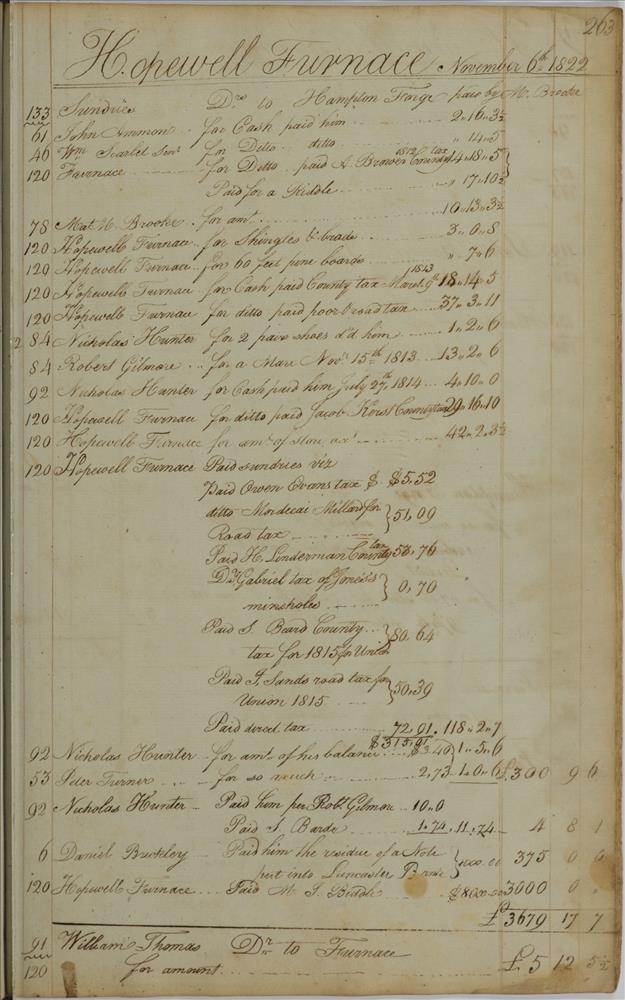 263
Hopewell Furnace November 6th 1822
133 Sundries Drs to Hampton Forge paid by M. Brooke
61 John Ammon for Cash paid him 2 " 16 " 3½
46 Wm Scarlet Senr for Ditto ditto " 14 " 5
120 Furnace for Ditto paid A. Brower 1812 County tax 14 " 18 " 5
Paid for a Riddle " 17 " 10½
78 Mat. M. Brooke for amt 10 " 13 " 3½
120 Hopewell Furnace for Shingles & brads 3 " 0 " 8
120 Hopewell Furnace for 60 feet pine boards " 7 " 6
120 Hopewell Furnace for Cash paid County tax March 9th 1813 18 " 14 " 5
120 Hopewell Furnace for ditto paid poor & road tax 37 " 3 " 11
84 Nicholas Hunter for 2 pair shoes d'd him 1 " 2 " 6
84 Robert Gilmore for a Mare Novr 15th 1813 13 " 2 " 6
92 Nicholas Hunter for Cash paid him July 27th 1814 4 " 10 " 0
120 Hopewell Furnace for ditto paid Jacob Kerst County tax 29 " 16 " 10
120 Hopewell Furnace for amt of store act 42 " 2 " 3½
120 Hopewell Furnace Paid sundries viz
Paid Owen Evans tax $ $5,52
ditto Mordecai Millard for
Road tax 51,09
Paid H. Linderman County tax 53,76
Do Gabriel tax of Jones's
mineholes 0,70
Paid S. Beard County
tax for 1815 for Union 80,64
Paid J. Sands road tax for
Union 1815 50,39
Paid direct tax 72,91. 118 " 2 " 7
$315,01
92 Nicholas Hunter for amt of his balance $3,40 1 " 5 " 6
53 Peter Turner for so much 2,73 1 " 0 " 6 £300 9 6
92 Nicholas Hunter Paid him per Robt Gilmore 10 " 0
Paid J. Barde 1.74. 11.74 4 8 1
6 Daniel Buckley Paid him the residue of a Note
put into Lancaster Bank 1000.00 375 0 0
120 Hopewell Furnace Paid M. J. Biddle $8000.00 3000 0 "
£3679 17 7
91 William Thomas Dr to Furnace
120 for amount £5 12 5½